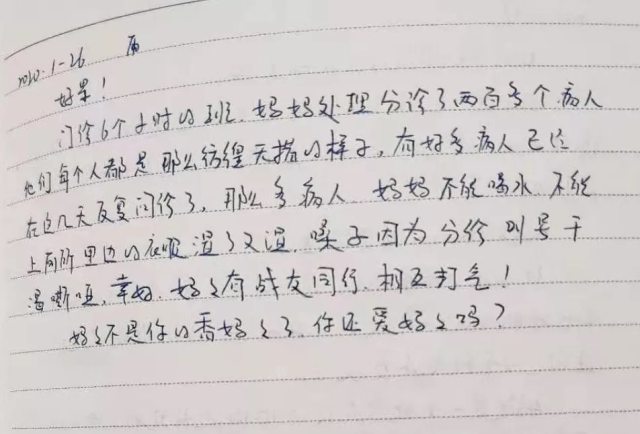 2020.1-26 雨
好累!
门诊6个小时的班,妈妈处理分诊了两百多个病人
他们每个人都是那么彷徨无措的样子,有好多病人已经
在这几天反复问诊了,那么多病人 妈妈不能喝水 不能
上厕所 里边的衣服湿了又湿 嗓子因为分诊叫号干
渴嘶哑,幸好,妈々有战友同行,相互打气!
妈々不是你的香妈々了,你还爱妈々吗?